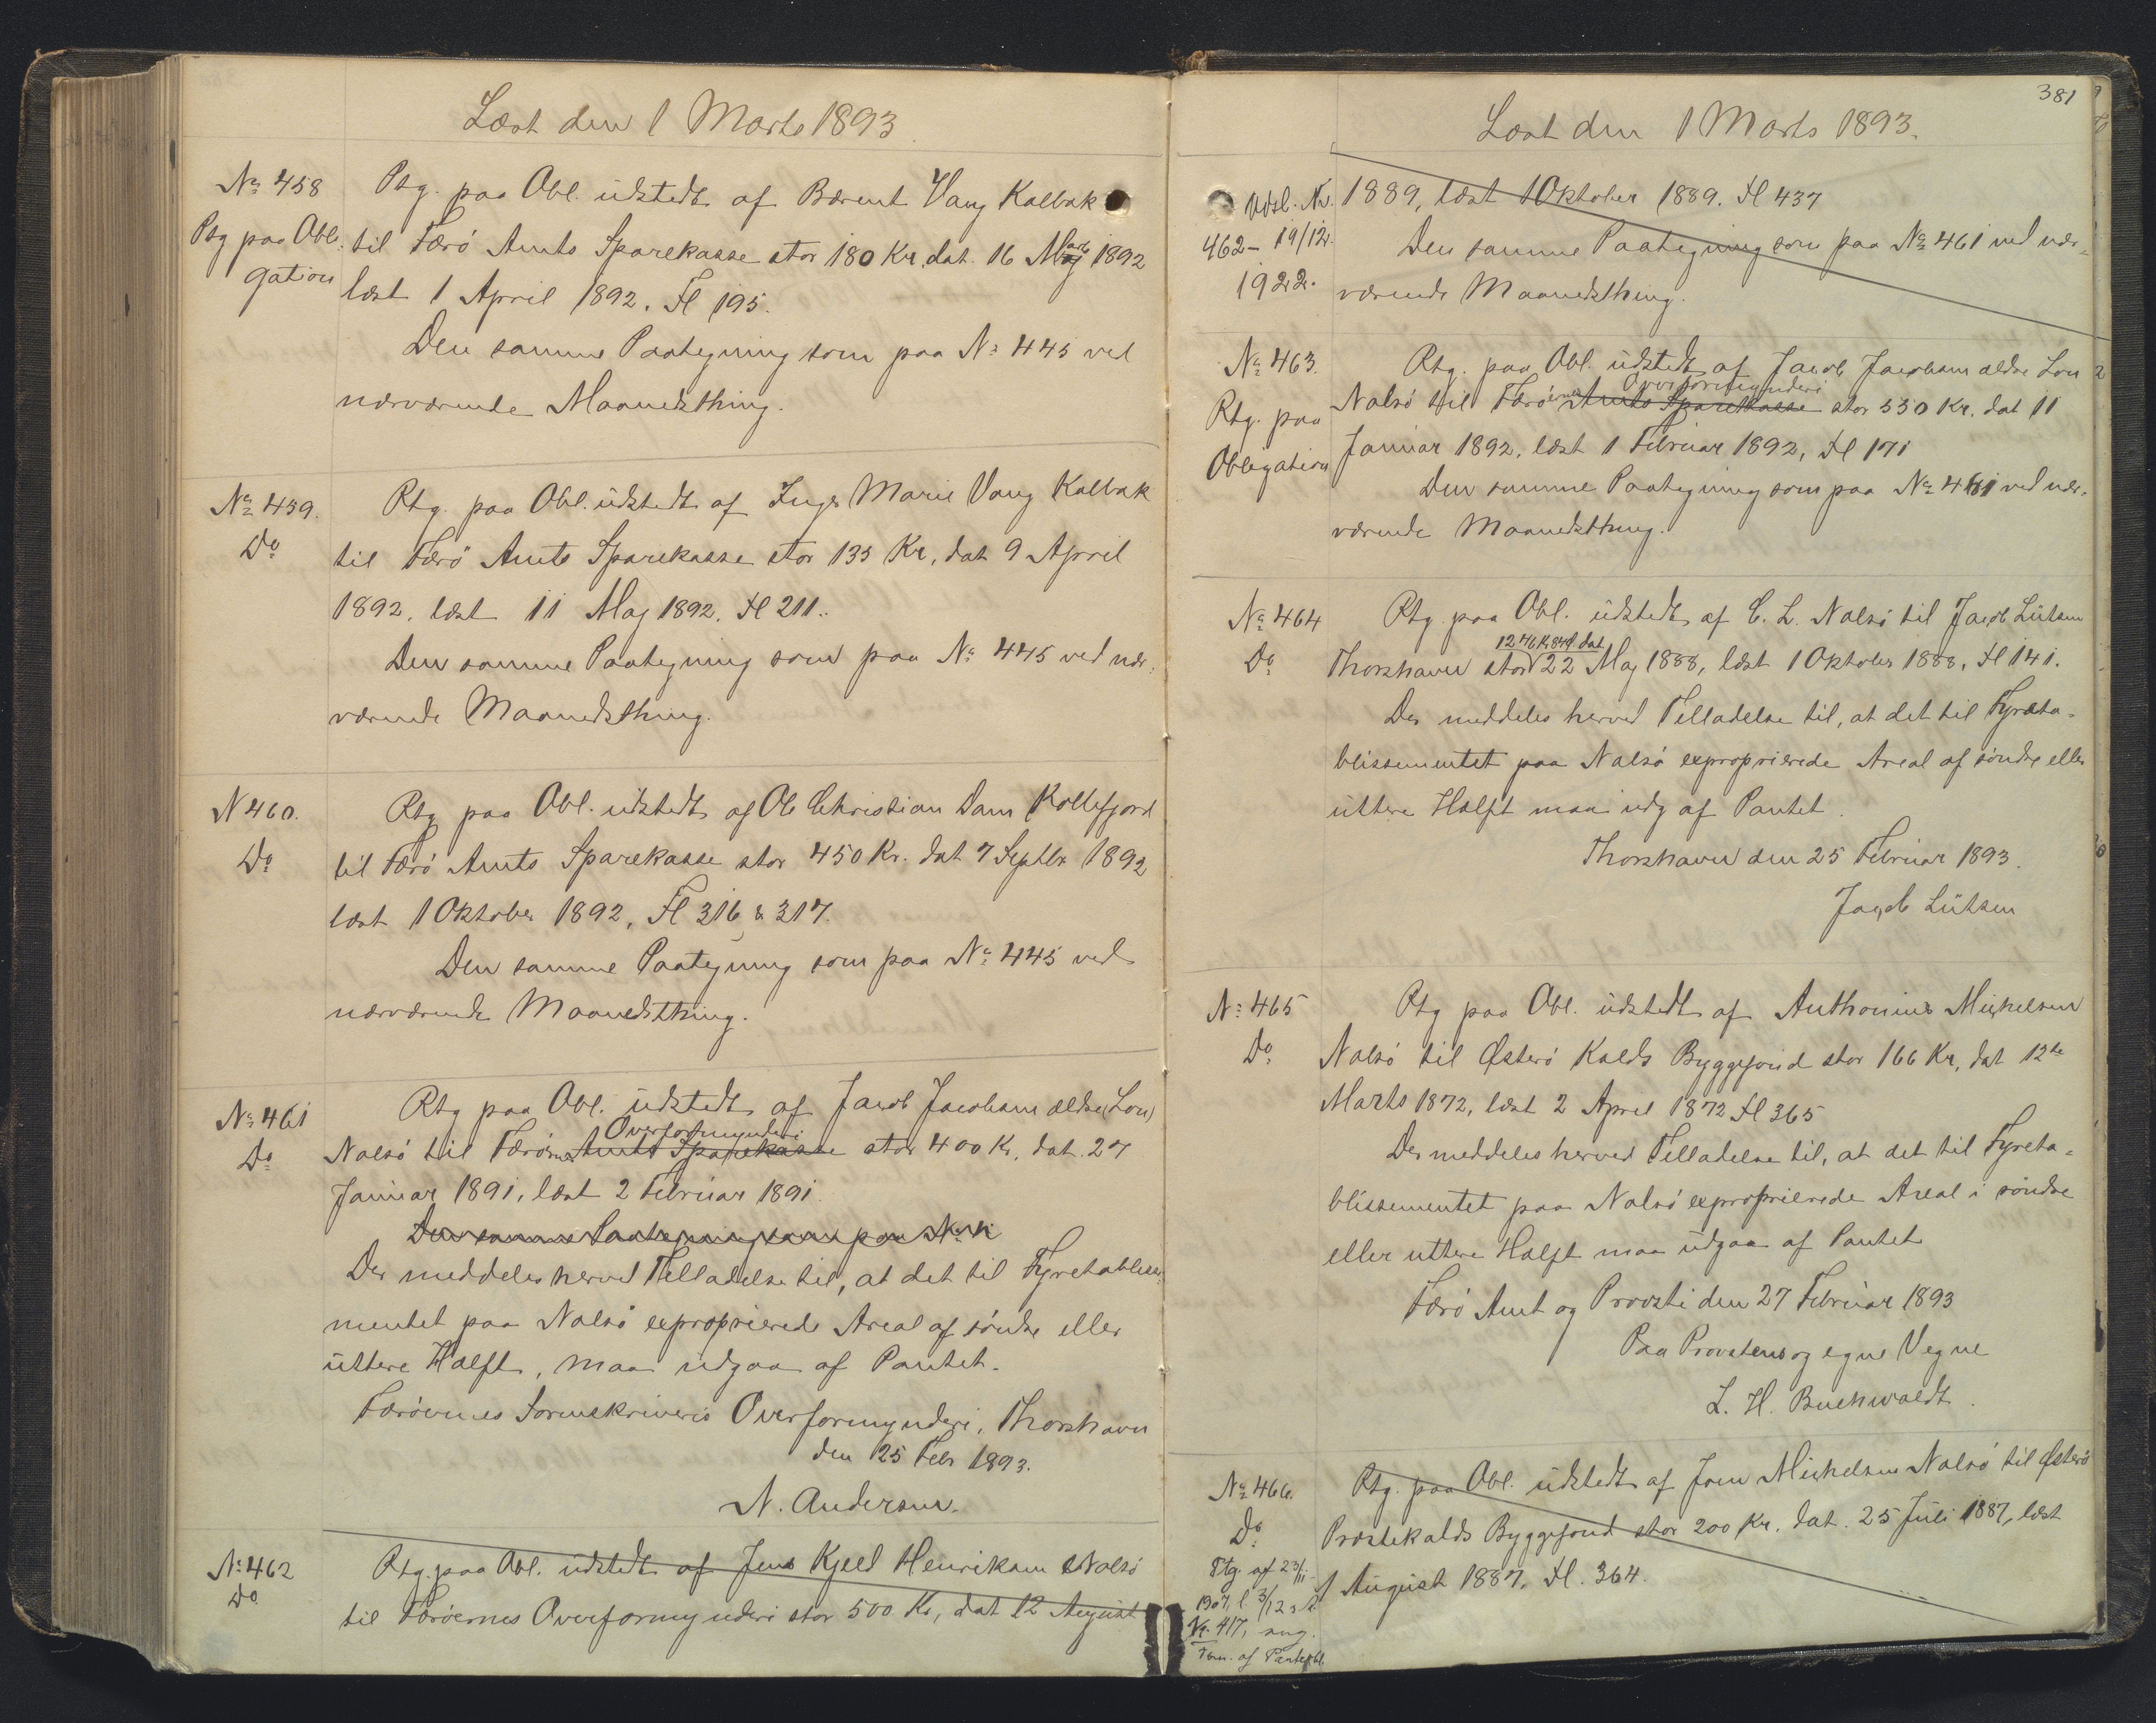 Læst den 1 Marts 1893
No 458
Ptg. paa Obl. udstedt af Bærent Vang Kalbak
Ptg paa Obli-
til Færö Amts Sparekasse stor 180 Kr, dat. 16 Marts 1892
gation
læst 1 April 1892. Fl 195.
Den samme Paategning som paa No 445 ved
nærværende Maanedsthing.
No 459.
Ptg. paa Obl. udstedt af Inger Marie Vang Kalbak
Do
til Færö Amts Sparekasse stor 135 Kr, dat 9 April
1892, læst 11 Maj 1892. Fl 211.
Den samme Paategning som paa No 445 ved nær-
værende Maanedsthing.
N 460.
Ptg paa Obl. udstedt af Ole Christian Dam Kollefjord
Do
til Færö Amts Sparekasse stor 450 Kr. dat 7 Septbr 1892
læst 1 Oktober 1892, Fl 316 & 317.
Den samme Paategning som paa No 445 ved
nærværende Maanedsthing.
No 461
Ptg paa Obl. udstedt af Jacob Jacobsen ældre (Lon)
Overformynderi
Do
Nolsö til Færöernes Amts Sparekasse stor 400 Kr, dat. 27
Januar 1891, læst 2 Februar 1891.
Den samme Paategning som paa No
Der meddeles herved Tilladelse til, at det til Fyretablisse-
mentet paa Nolsö exproprierede Areal af söndre eller
uttere Halft, maa udgaa af Pantet.
Færöernes Sorenskriveris Overformynderi, Thorshavn
den 25 Febr 1893.
N. Andersen.
No 462
Ptg. paa Obl. udstedt af Jens Kjeld Henriksen Nolsö
Do
til Færöernes Overformynderi stor 500 Kr, dat 12 August
381
Læst den 1 Marts 1893.
Udsl. Nr.
1889, læst 1 Oktober 1889. Fl 437
462 - 19/12.
Den samme Paategning som paa No 461 ved nær-
1922.
værende Maanedsthing.
No 463.
Ptg. paa Obl. udstedt af Jacob Jacobsen ældre Lon
Overformynderi
Ptg. paa
Nolsö til Færöernes Amts Sparekasse stor 550 Kr. dat 11
Obligation
Januar 1892, læst 1 Februar 1892, Fl 171
Den samme Paategning som paa No 461 ved nær-
værende Maanedsthing.
No 464
Ptg. paa Obl. udstedt af C. L. Nolsö til Jacob Lützen
1246 Kr 84 Ø dat
Do
Thorshavn stor 22 Maj 1888, læst 1 Oktober 1888, Fl 141.
Der meddeles herved Tilladelse til, at det til Fyreta-
blissementet paa Nolsö exproprierede Areal af söndre eller
uttere Halft maa udg af Pantet.
Thorshavn den 25 Februar 1893.
Jacob Lützen
No 465
Ptg paa Obl. udstedt af Anthonius Michelsen
Do
Nolsö til Østerö Kalds Byggefond stor 166 Kr, dat 12te
Marts 1872, læst 2 April 1872 Fl 365
Der meddeles herved Tilladelse til, at det til Fyreta-
blissementet paa Nolsö exproprierede Areal i söndre
eller uttere Halft maa udgaa af Pantet
Færö Amt og Provsti den 27 Februar 1893
Paa Provstens og egne Vegne
L. H. Buchwaldt.
No 466.
Ptg. paa Obl. udstedt af Joen Michelsen Nolsö til Østerö
Do
Præstekalds Byggefond stor 200 Kr. dat. 25 Juli 1887, læst
Ptg. af 23/11
1 August 1887. Fl. 364.
1907, l. 3/12 s. A.
Nr. 417, ang.
af Panteobl.